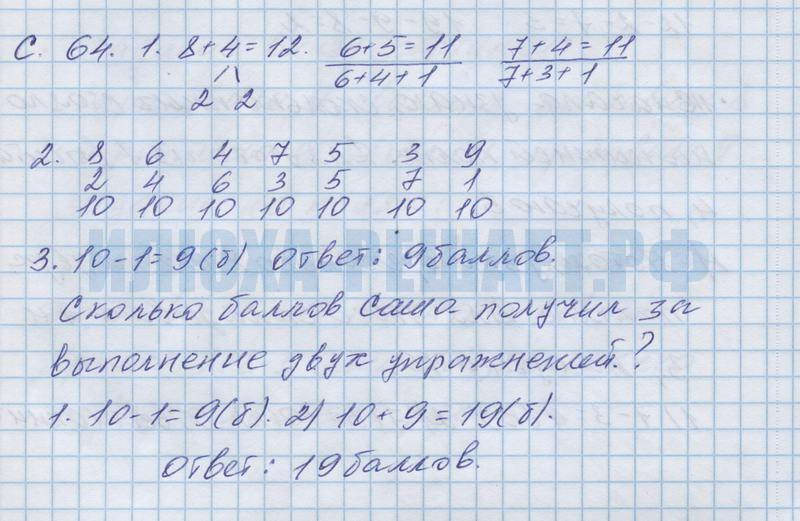 С. 64. 1. 8+4=12. 6+5=11 7+4=11
2 2 6+4+1 7+3+1
2. 8 6 4 7 5 3 9
2 4 6 3 5 7 1
10 10 10 10 10 10 10
3. 10-1=9(б) Ответ: 9 баллов.
ИЛЮХА-РЕШАЕТ.РФ
Сколько баллов Саша получил за
выполнение двух упражнений.?
1. 10-1=9(б). 2) 10+9=19(б).
Ответ: 19 баллов.